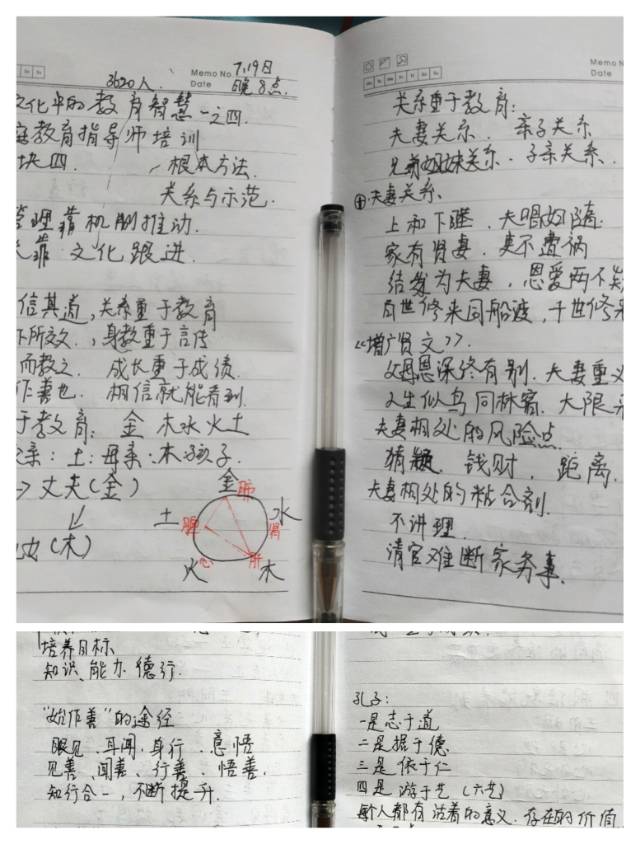 3620人.
Memo No. 7.19日
Date 晚8点.
文化中的教育智慧-之四.
庭教育指导师培训
块四. 根本方法.
关系与示范.
管理靠机制推动.
靠 文化跟进.
信其道,关系重于教育
下所效.,身教重于言传
而教之. 成长重于成绩.
作善也. 相信就能看到.
于教育: 金 木水火土
父亲:土:母亲:木:孩子.
→丈夫(金)
(木)
金 肺
土 脾
水 肾
火 心
木 肝
Memo N
Date
关系重于教育:
夫妻关系. 亲子关系
兄弟姐妹关系.子亲关系.
⊕.夫妻关系.
上和下睦.夫唱妇随.
家有贤妻.夫不遭祸
结发为夫妻,恩爱两不
百世修来同船渡,千世修来
《增广贤文》.
父母恩深终有别.夫妻重义
人生似鸟同林宿.大限来
夫妻相处的风险点.
猜疑. 钱财. 距离.
夫妻相处的粘合剂.
不讲理.
清官难断家务事.
培养目标
知识、能力.德行.
"始作善"的途经
眼见.耳闻.身行.意悟
见善、闻善、行善.悟善.
知行合一,不断提升.
孔子:
一是志于道
二是据于德
三是依于仁
四是游于艺(六艺)
每个人都有活着的意义.存在的价值